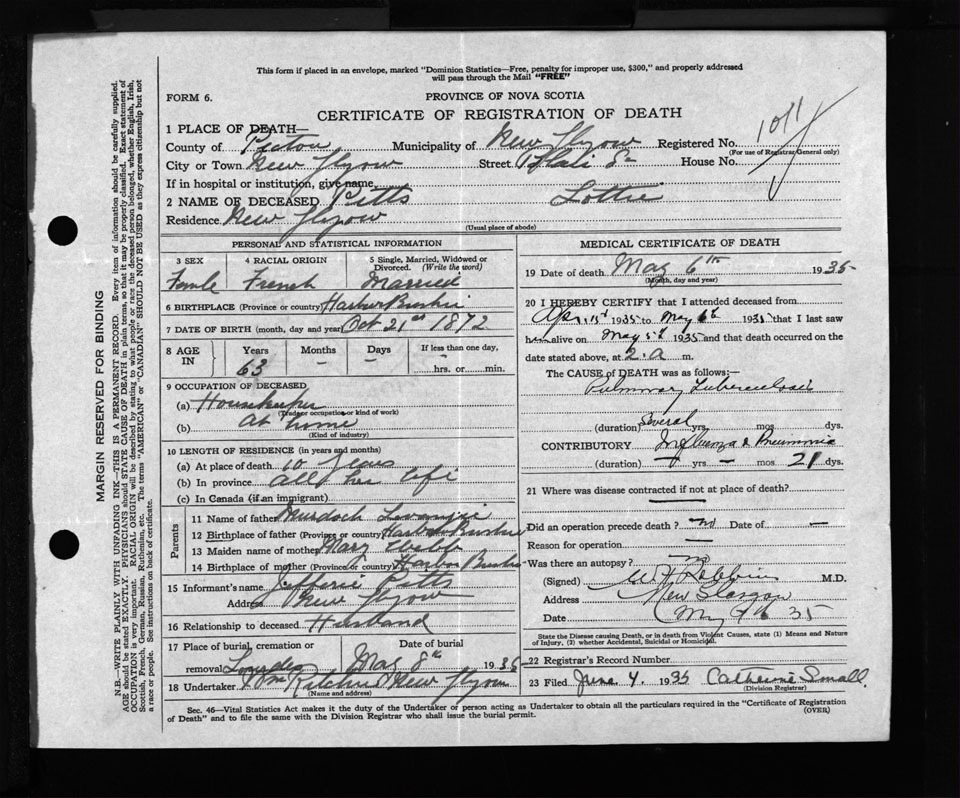 This form if placed in an envelope, marked "Dominion Statistics—Free, penalty for improper use, $300," and properly addressed
will pass through the Mail "FREE"
FORM 6.
PROVINCE OF NOVA SCOTIA
CERTIFICATE OF REGISTRATION OF DEATH
1011
1 PLACE OF DEATH—
County of Pictou Municipality of New Glsgow Registered No.
(For use of Registrar General only)
City or Town New Glsgow Street House No.
If in hospital or institution, give name
2 NAME OF DECEASED Pitts Lottie
Residence New Glsgow
(Usual place of abode)
PERSONAL AND STATISTICAL INFORMATION
3 SEX 4 RACIAL ORIGIN 5 Single, Married, Widowed or Divorced. (Write the word)
Femle French Married
6 BIRTHPLACE (Province or country) Harbor
7 DATE OF BIRTH (month, day and year) Oct 21st 1872
8 AGE IN Years Months Days If less than one day,
63 – – hrs. or min.
9 OCCUPATION OF DECEASED
(a) Housekeeper
(Trade or occupation or kind of work)
(b) At home
(Kind of industry)
10 LENGTH OF RESIDENCE (in years and months)
(a) At place of death years
(b) In province all her life
(c) In Canada (if an immigrant)
Parents
11 Name of father Murdoch
12 Birthplace of father (Province or country) Harbor
13 Maiden name of mother Mary Webb
14 Birthplace of mother (Province or country) Harbor
15 Informant's name Pitts
Address New Glsgow
16 Relationship to deceased Husband
17 Place of burial, cremation or removal Lourdes Date of burial May 8th 1935
18 Undertaker Wm Ritchie New Glsgow
(Name and address)
MEDICAL CERTIFICATE OF DEATH
19 Date of death May 6th 1935
(Month, day and year)
20 I HEREBY CERTIFY that I attended deceased from
Apr. 15th 1935 to May 6th 1935 that I last saw
her alive on May 5th 1935 and that death occurred on the
date stated above, at 2.a m.
The CAUSE of DEATH was as follows:—
Pulmonary Tuberculosis
(duration) Several yrs. mos. dys.
CONTRIBUTORY Influenza & Pneumonia
(duration) – yrs – mos 21 dys.
21 Where was disease contracted if not at place of death?
Did an operation precede death? no Date of —
Reason for operation —
Was there an autopsy? no
(Signed) W H Robbins M.D.
Address New Glasgow
Date May 7th 35
State the Disease causing Death, or in death from Violent Causes, state (1) Means and Nature
of Injury, (2) whether Accidental, Suicidal or Homicidal.
22 Registrar's Record Number
23 Filed June 4, 1935 Catherine Small
(Division Registrar)
Sec. 46—Vital Statistics Act makes it the duty of the Undertaker or person acting as Undertaker to obtain all the particulars required in the "Certificate of Registration
of Death" and to file the same with the Division Registrar who shall issue the burial permit. (OVER)
MARGIN RESERVED FOR BINDING
N.B.—WRITE PLAINLY WITH UNFADING INK—THIS IS A PERMANENT RECORD. Every item of information should be carefully supplied.
AGE should be stated EXACTLY. PHYSICIANS should STATE CAUSE OF DEATH in plain terms, so that it may be properly classified. Exact statement of
OCCUPATION is very important. RACIAL ORIGIN will be described by stating to what people or race the deceased person belonged, whether English, Irish,
Scottish, French, German, Russian, Ruthenian, etc. The terms "AMERICAN" or "CANADIAN" SHOULD NOT BE USED as they express citizenship but not
a race or people. See instructions on back of certificate.